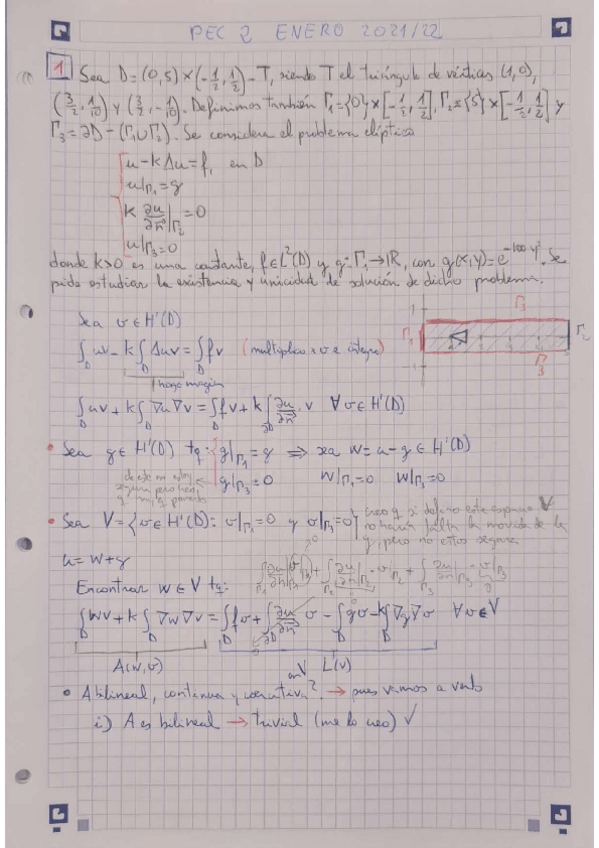 PEC 2 ENERO 2021/22
1 Sea D=(0,5)×(-1/2,1/2)-T, siendo T el triángulo de vértices (1,0),
(3/2,1/10) y (3/2,-1/10). Definimos también Γ₁={0}×[-1/2,1/2], Γ₂={5}×[-1/2,1/2] y
Γ₃=∂D-(Γ₁∪Γ₂). Se considera el problema elíptico
u-kΔu=f, en D
u|Γ₁=g
k ∂u/∂n|Γ₂=0
u|Γ₃=0
donde k>0 es una constante, f∈L²(D) y g:Γ₁→ℝ, con g(x,y)=e^(-100y²). Se
pide estudiar la existencia y unicidad de solución de dicho problema.
Sea v∈H¹(D)
∫_D uv-k∫_D Δuv=∫_D fv (multiplico × v e integro)
hago magia
∫_D uv+k∫_D ∇u∇v=∫_D fv+k∫_∂D ∂u/∂n v ∀v∈H¹(D)
1
Γ₃
Γ₁
Γ₂
Γ₃
-1
• Sea g∈H¹(D) tq: g|Γ₁=g ⟹ sea w=u-g∈H¹(D)
g|Γ₃=0 w|Γ₁=0 w|Γ₃=0
de este no estoy
segura pero
• Sea V={v∈H¹(D): v|Γ₁=0 y v|Γ₃=0} creo q si defino este espacio V
no haría falta la movida de la
g, pero no estoy segura
u=w+g
Encontrar w∈V tq:
∫_Γ₁ ∂u/∂n|Γ₁ v|Γ₁+∫_Γ₂ ∂u/∂n|Γ₂ v|Γ₂+∫_Γ₃ ∂u/∂n|Γ₃ v|Γ₃
∫_D wv+k∫_D ∇w∇v=∫_D fv+∫_∂D ∂u/∂n v-∫_D gv-k∫_D ∇g∇v ∀v∈V
A(w,v) L(v)
• A bilineal, continua y coercitiva en V? → pues vamos a verlo
i) A es bilineal → trivial (me lo creo) ✓